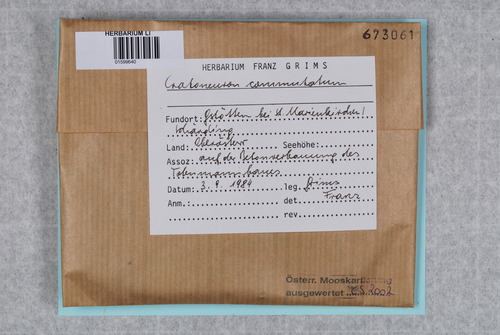 HERBARIUM LI
01599640
673061
HERBARIUM FRANZ GRIMS
Cratoneuron commutatum
Fundort: Gstötten bei St. Marienkirchen /
Schärding
Land: Oberösterr. Seehöhe:
Assoz: auf der Betonverbauung des
Datum: 3. 9. 1984 leg. Grims
Anm.: det. Franz
rev.
Österr. Mooskartierung
ausgewertet 2002